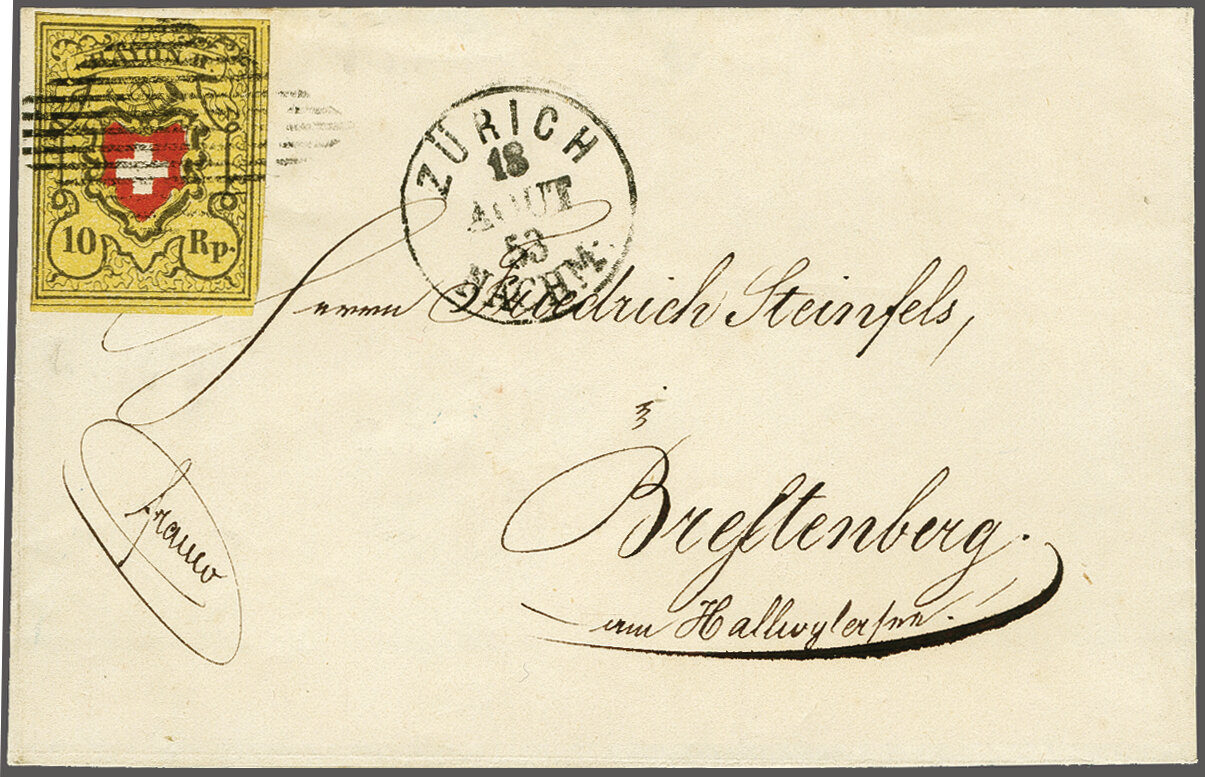 RAYON II.
10 Rp.
ZÜRICH
18
AOUT
53
NACHM.
Herrn Friedrich Steinfels,
z
Breſtenberg.
am Hallwylerſee.
franco